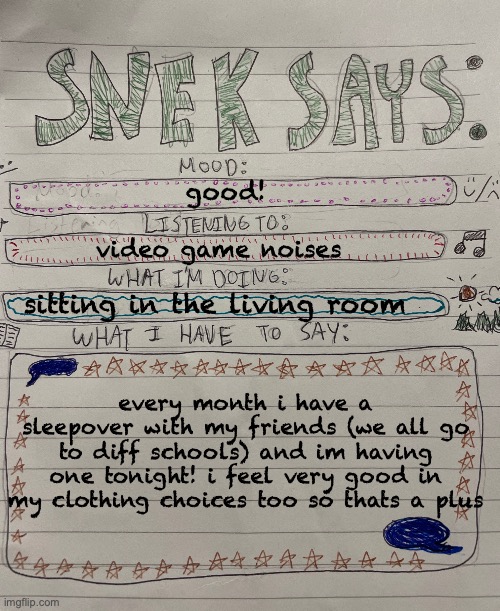 SNEK SAYS:
MOOD:
good!
LISTENING TO:
video game noises
WHAT I'M DOING:
sitting in the living room
WHAT I HAVE TO SAY:
every month i have a
sleepover with my friends (we all go
to diff schools) and im having
one tonight! i feel very good in
my clothing choices too so thats a plus
imgflip.com